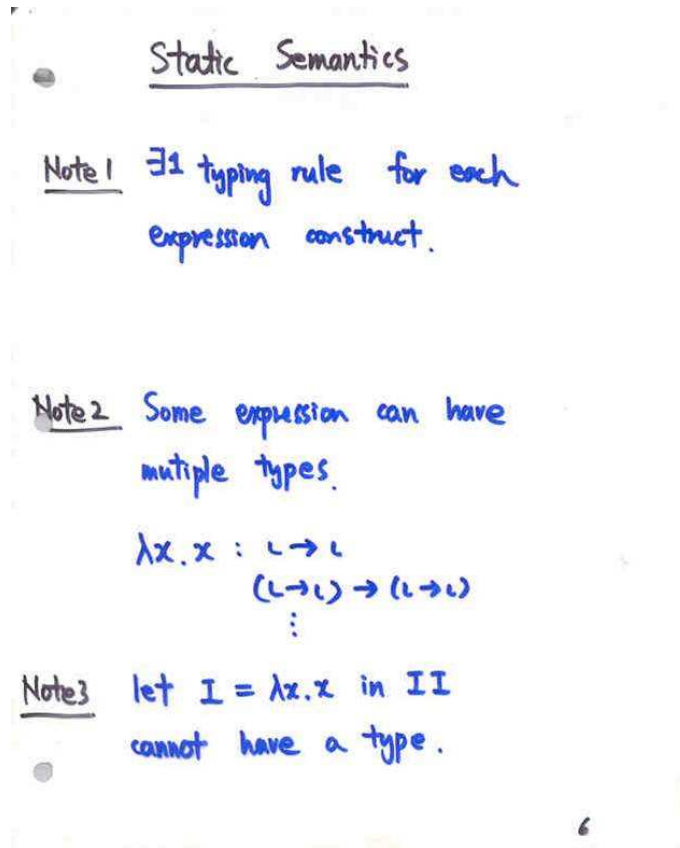 Static Semantics
Note 1 ∃1 typing rule for each
expression construct.
Note 2 Some expression can have
mutiple types.
λx.x : ι→ι
(ι→ι)→(ι→ι)
⋮
Note3 let I = λx.x in II
cannot have a type.
6